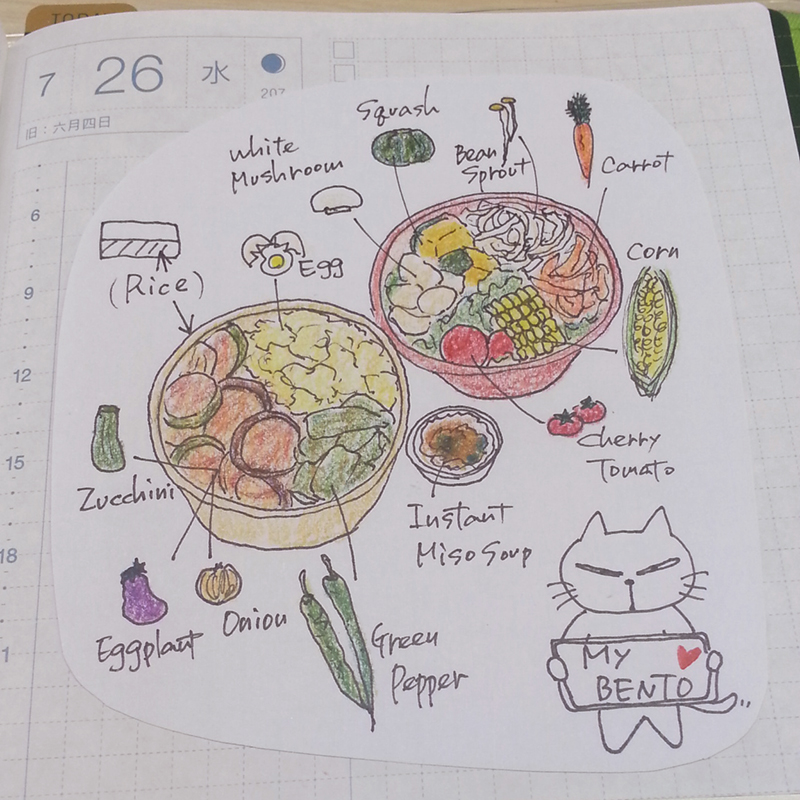 TODAY
7 26 水
207
旧：六月四日
6
9
12
15
18
Squash
White
Mushroom
Bean
Sprout
Carrot
Egg
(Rice)
Corn
Cherry
Tomato
Zucchini
Instant
Miso Soup
Eggplant
Onion
Green
Pepper
MY
BENTO